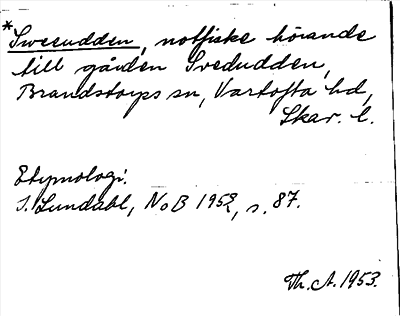 *Sweeudden, notfiske hörande
till gården Svedudden,
Brandstorps sn, Vartofta hd,
Skar. l.
Etymologi:
I. Lundahl, NoB 1952, s. 87.
Th. A. 1953.